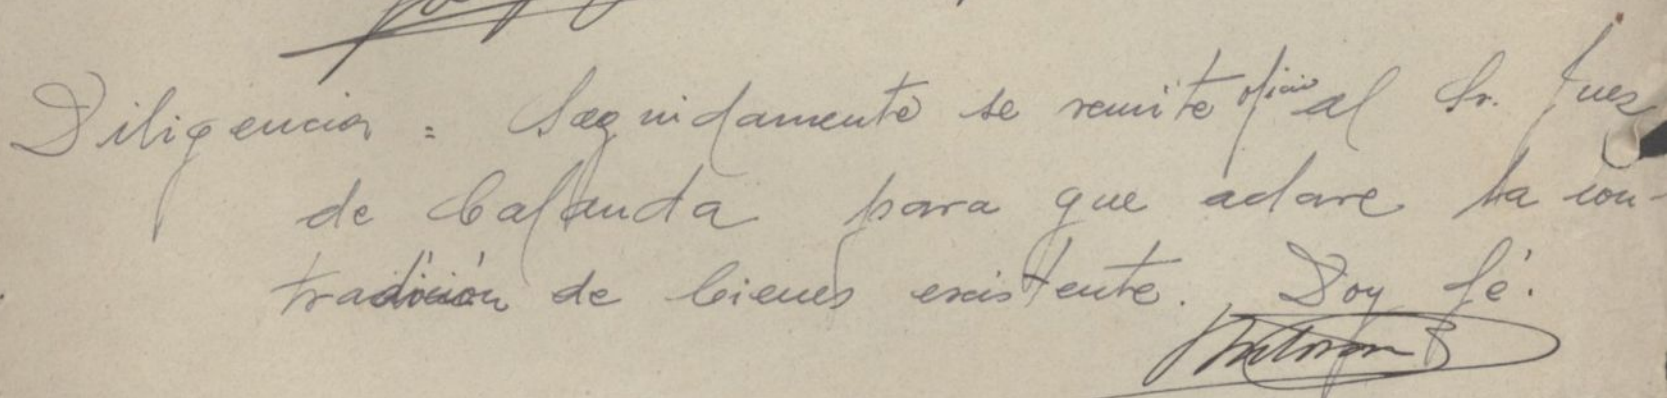 Diligencia = Seguidamente se remite oficio al Sr. Juez
de Calanda para que aclare la con-
tradición de bienes existente. Doy fé.